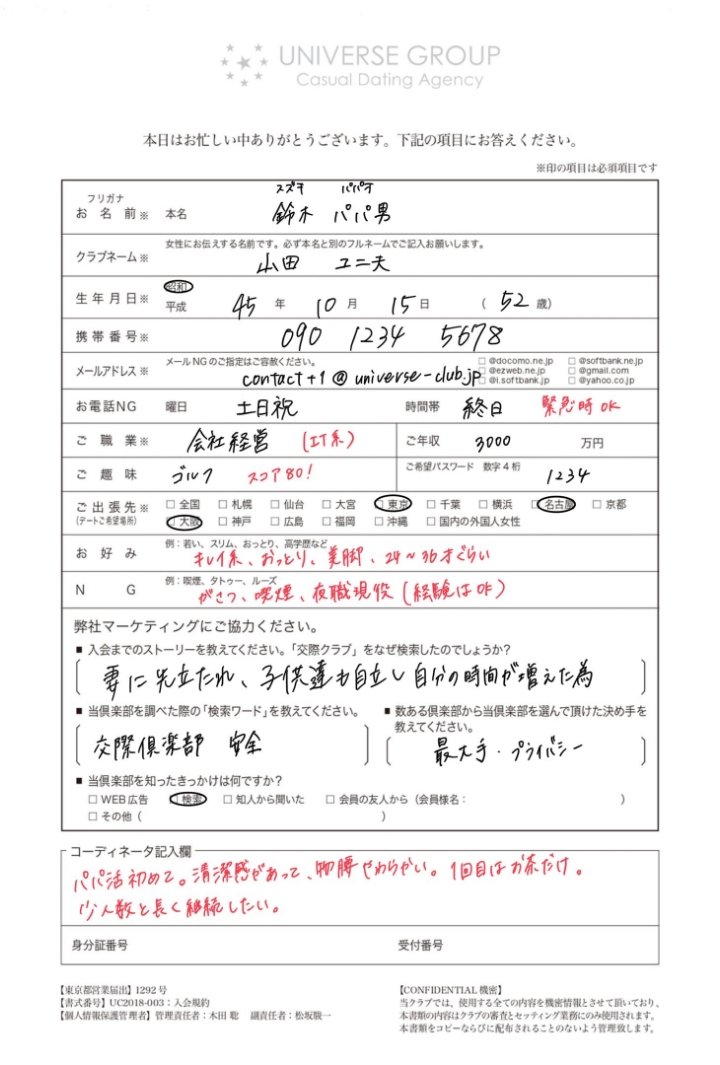 UNIVERSE GROUP
Casual Dating Agency
本日はお忙しい中ありがとうございます。下記の項目にお答えください。
※印の項目は必須項目です
フリガナ スズキ パパオ
お名前※ 本名 鈴木 パパ男
女性にお伝えする名前です。必ず本名と別のフルネームでご記入お願いします。
クラブネーム※ 山田 ユニ夫
生年月日※ 昭和 平成 45年 10月 15日 (52歳)
携帯番号※ 090 1234 5678
メールNGのご指定はご容赦ください。
メールアドレス※ contact+1@universe-club.jp
□@docomo.ne.jp □@softbank.ne.jp
□@ezweb.ne.jp □@gmail.com
□@i.softbank.jp □@yahoo.co.jp
お電話NG 曜日 土日祝 時間帯 終日 緊急時OK
ご職業※ 会社経営 (IT系) ご年収 3000 万円
ご趣味 ゴルフ スコア80! ご希望パスワード 数字4桁 1234
ご出張先※ □全国 □札幌 □仙台 □大宮 □東京 □千葉 □横浜 □名古屋 □京都
(デートご希望場所) □大阪 □神戸 □広島 □福岡 □沖縄 □国内の外国人女性
例:若い、スリム、おっとり、高学歴など
お好み キレイ系、おっとり、美脚、24~36才ぐらい
例:喫煙、タトゥー、ルーズ
NG がさつ、喫煙、夜職現役(経験はOK)
弊社マーケティングにご協力ください。
■ 入会までのストーリーを教えてください。「交際クラブ」をなぜ検索したのでしょうか?
妻に先立たれ、子供達も自立し自分の時間が増えた為
■ 当倶楽部を調べた際の「検索ワード」を教えてください。
交際倶楽部 安全
■ 数ある倶楽部から当倶楽部を選んで頂けた決め手を
教えてください。
最大手・プライバシー
■ 当倶楽部を知ったきっかけは何ですか?
□WEB広告 □検索 □知人から聞いた □会員の友人から(会員様名: )
□その他( )
コーディネータ記入欄
パパ活初めて。清潔感があって、物腰やわらかい。1回目はお茶だけ。
少人数と長く継続したい。
身分証番号 受付番号
【東京都営業届出】1292号
【書式番号】UC2018-003:入会規約
【個人情報保護管理者】管理責任者:木田 聡 副責任者:松坂駿一
【CONFIDENTIAL 機密】
当クラブでは、使用する全ての内容を機密情報とさせて頂いており、
本書類の内容はクラブの審査とセッティング業務にのみ使用されます。
本書類をコピーならびに配布されることのないよう管理致します。